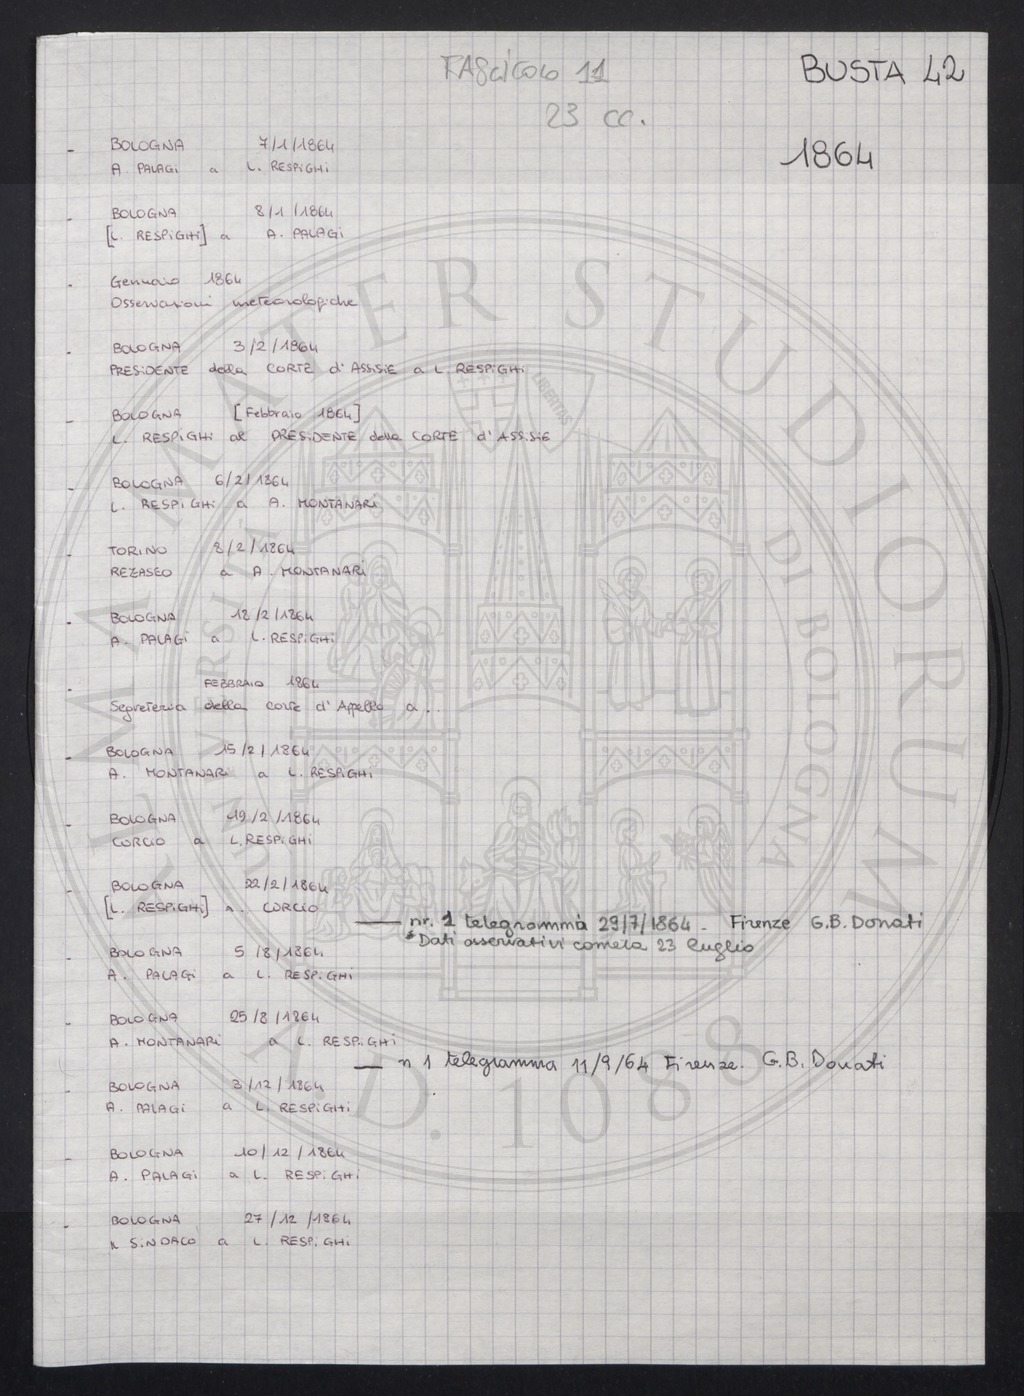 FASCICOLO 11
BUSTA 42
23 cc.
1864
- BOLOGNA 7/1/1864
A. PALAGI a L. RESPIGHI
- BOLOGNA 8/1/1864
[L. RESPIGHI] a A. PALAGI
- Gennaio 1864
Osservazioni meteorologiche
- BOLOGNA 3/2/1864
PRESIDENTE della CORTE d'ASSISIE a L RESPIGHI
- BOLOGNA [Febbraio 1864]
L. RESPIGHI al PRESIDENTE della CORTE d'ASSISIE
- BOLOGNA 6/2/1864
L. RESPIGHI a A. MONTANARI
- TORINO 8/2/1864
REZASCO a A. MONTANARI
- BOLOGNA 12/2/1864
A. PALAGI a L. RESPIGHI
- FEBBRAIO 1864
Segreteria della corte d'Appello a ..
- BOLOGNA 15/2/1864
A. MONTANARI a L. RESPIGHI
- BOLOGNA 19/2/1864
CURCIO a L. RESPIGHI
- BOLOGNA 22/2/1864
[L. RESPIGHI] a. CURCIO
— nr. 1 telegramma 29/7/1864 - Firenze G.B. Donati
* Dati osservativi cometa 23 luglio
- BOLOGNA 5/8/1864
A. PALAGI a L. RESPIGHI
- BOLOGNA 25/8/1864
A. MONTANARI a L. RESPIGHI
— n 1 telegramma 11/9/64 Firenze. G.B. Donati
- BOLOGNA 3/12/1864
A. PALAGI a L. RESPIGHI
- BOLOGNA 10/12/1864
A. PALAGI a L. RESPIGHI
- BOLOGNA 27/12/1864
IL SINDACO a L. RESPIGHI
ALMA MATER STUDIORUM
UNIVERSITÀ DI BOLOGNA
LIBERTAS
A.D. 1088